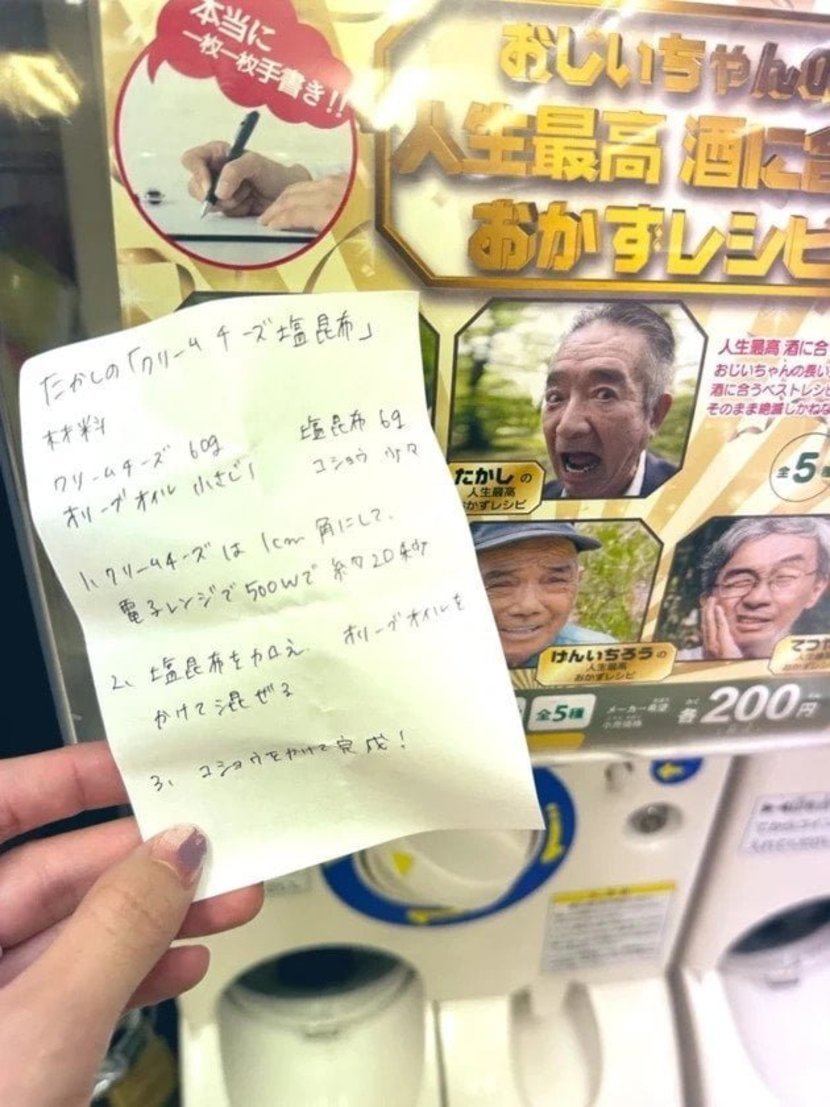 本当に
一枚一枚手書き!!
おじいちゃんの
人生最高 酒に合
おかずレシピ
たかしの「クリームチーズ塩昆布」
材料
クリームチーズ 60g 塩昆布 6g
オリーブオイル 小さじ1 コショウ 少々
1、クリームチーズは1cm角にして、
電子レンジで500Wで約20秒
2、塩昆布を加え オリーブオイルを
かけて混ぜる
3、コショウをかけて完成!
人生最高 酒に合
おじいちゃんの長い
酒に合うベストレシ
そのまま絶滅しかねな
全5
たかしの
人生最高
おかずレシピ
けんいちろうの
人生最高
おかずレシピ
てつ
人生最高
おかずレシピ
全5種
メーカー希望
小売価格
各200円